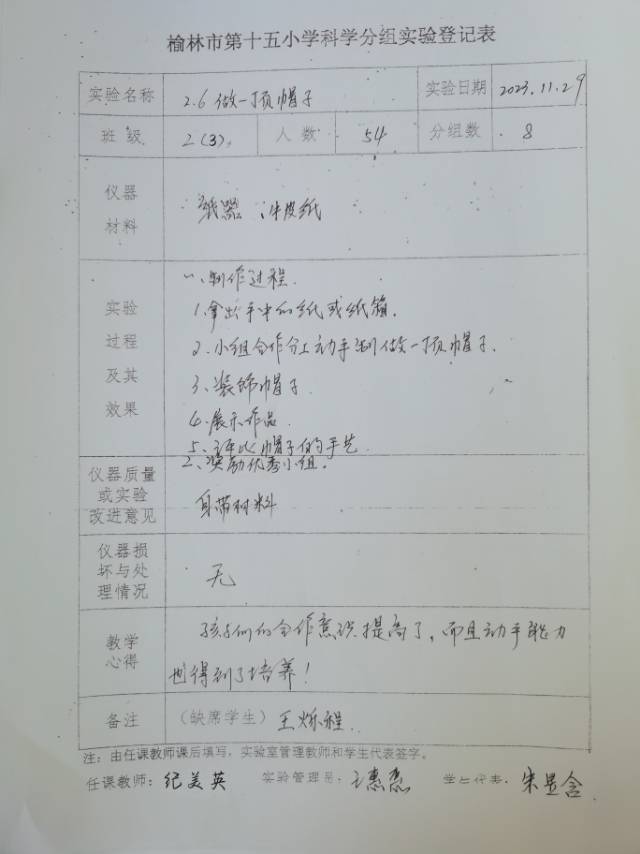 榆林市第十五小学科学分组实验登记表
实验名称 2.6 做一顶帽子 实验日期 2023.11.29
班级 2(3). 人数 54 分组数 8
仪器材料 纸器、牛皮纸
实验过程及其效果
一、制作过程.
1.拿出手中的纸或纸箱.
2.小组合作分工动手制做一顶帽子.
3、装饰帽子
4.展示作品.
5、评比帽子的手艺
二、奖励优秀小组.
仪器质量或实验改进意见 自带材料
仪器损坏与处理情况 无
教学心得 孩子们的合作意识提高了,而且动手能力
也得到了培养!
备注 (缺席学生) 王烁程
注:由任课教师课后填写,实验室管理教师和学生代表签字。
任课教师:纪美英 实验管理员: 惠 学生代表:宋显含